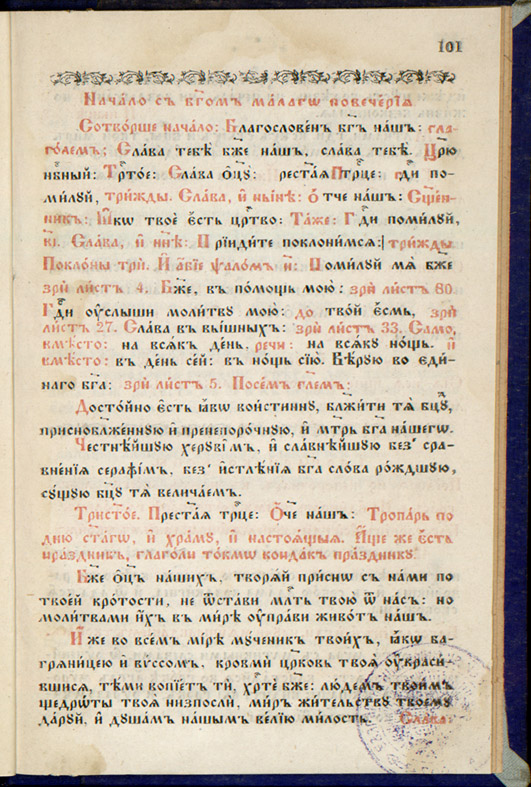 101
Нача́ло съ бг҃омъ ма́лагѡ повече́рїѧ
Сотво́рше нача́ло: Благослове́нъ бг҃ъ на́шъ: гла-
го́лемъ: Сла́ва тебѣ̀ бж҃е на́шъ, сла́ва тебѣ̀. Цр҃ю̀
нбⷭ҇ный: Трⷭ҇то́е: Сла́ва ѻ҆ц҃ꙋ̀: преста́ѧ трⷪ҇це: гдⷭ҇и по-
ми́лꙋй, три́жды. Сла́ва, и҆ ны́нѣ: ѻ҆́тче на́шъ: Сщ҃е́н-
никъ: Ꙗ҆́кѡ твоѐ є҆́сть црⷭ҇тво: Та́же: Гдⷭ҇и поми́лꙋй,
в҃і. Сла́ва, и҆ нн҃ѣ: Прїиди́те поклони́мсѧ: три́жды.
Покло́ны трѝ. И҆ а҆́бїе ѱало́мъ н҃: Поми́лꙋй мѧ̀ бж҃е
зрѝ ли́стъ 4. Бж҃е, въ по́мощь мою̀: зрѝ ли́стъ 60.
Гдⷭ҇и ᲂу҆слы́ши моли́твꙋ мою̀: до тво́й є҆́смь, зрѝ
ли́стъ 27. Сла́ва въ вы́шныхъ: зрѝ ли́стъ 33. Само,
вмѣ́стѡ: на всѧ́къ де́нь, речѝ: на всѧ́кꙋ но́щь. и҆
вмѣ́стѡ: въ де́нь се́й: въ но́щь сїю̀. Вѣ́рꙋю во є҆ди́-
наго бг҃а: зрѝ ли́стъ 5. Посе́мъ гл҃емъ:
Досто́йно є҆́сть ꙗ҆́кѡ вои́стиннꙋ, бл҃жи́ти тѧ̀ бцⷣꙋ,
присноблаже́ннꙋю и҆ пренепоро́чнꙋю, и҆ мт҃рь бг҃а на́шегѡ.
Честнѣ́йшꙋю херꙋві̑мъ, и҆ сла́внѣйшꙋю без̾ сра-
вне́нїѧ серафі́мъ, без̾ и҆стлѣ́нїѧ бг҃а сло́ва ро́ждшꙋю,
сꙋ́щꙋю бцⷣꙋ тѧ̀ велича́емъ.
Трист҃о́е. Преста́ѧ трⷪ҇це: Ѻ҆́ч҃е на́шъ: Тропа́рь по
дню̀ ст҃а́гѡ, и҆ хра́мꙋ, и҆ настоѧ́щыѧ. А҆́ще же є҆́сть
пра́здникъ, глаго́ли то́кмѡ конда́къ пра́здникꙋ.
Бж҃е ѻ҆ц҃ъ на́шихъ, творѧ́й при́снѡ съ на́ми по
твое́й кро́тости, не ѿста́ви млⷭ҇ть твою̀ ѿ на́съ: но
моли́твами и҆́хъ въ ми́рѣ ᲂу҆пра́ви живо́тъ на́шъ.
И҆́же во все́мъ мі́рѣ мꙋ́ченикъ твои́хъ, ꙗ҆́кѡ ба-
грѧни́цею и҆ вѵ́ссомъ, кровьмѝ цр҃ковь твоѧ̀ ᲂу҆краси́-
вшисѧ, тѣ́ми вопїе́тъ тѝ, хрⷭ҇тѐ бж҃е: лю́демъ твои̑мъ
щедрѡ́ты твоѧ̑ низпослѝ, ми́ръ жи́тельствꙋ твоемꙋ̀
да́рꙋй, и҆ дꙋша́мъ на́шымъ ве́лїю ми́лость. Сла́ва: